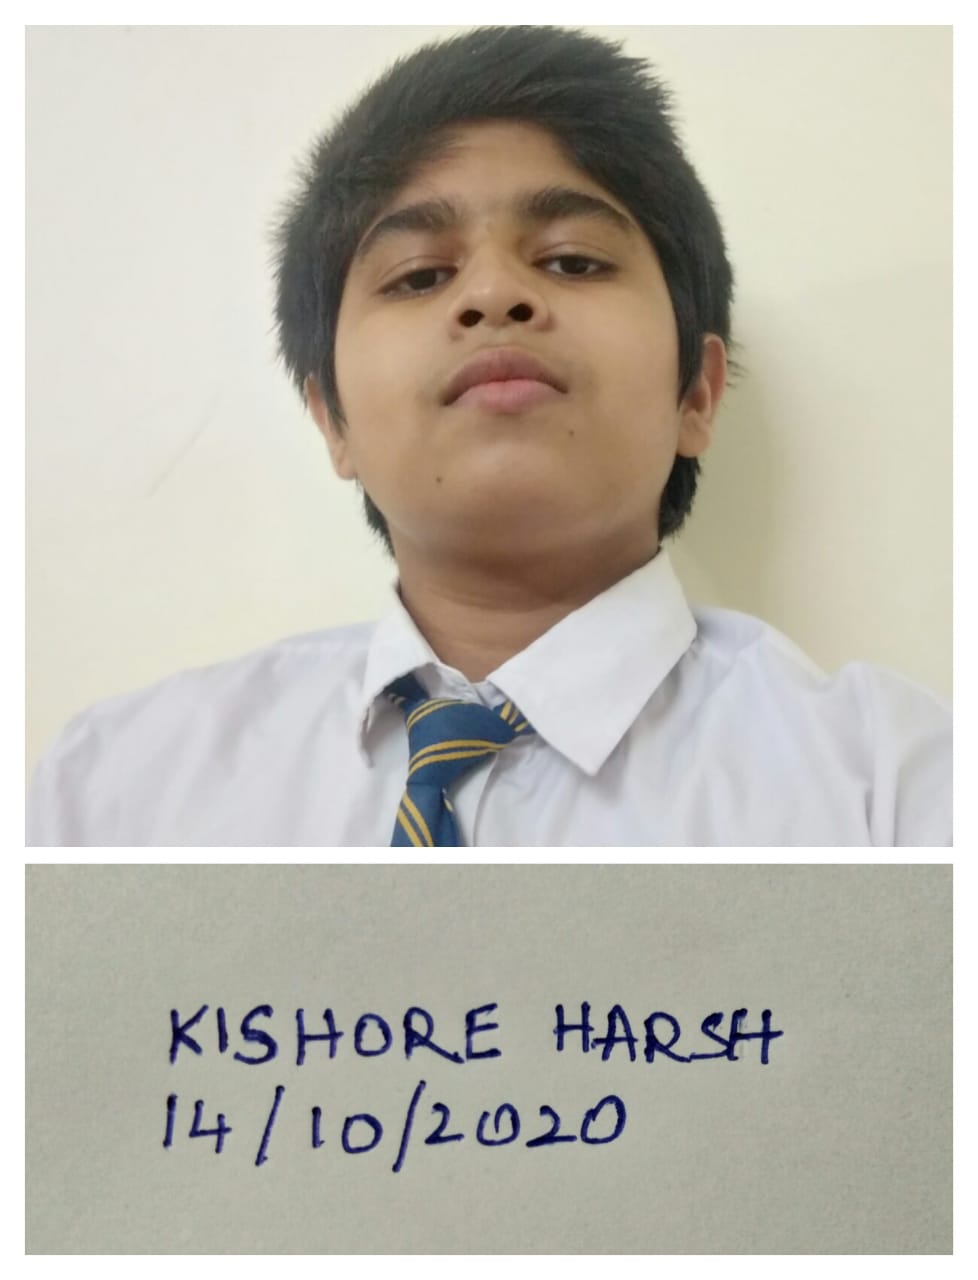 KISHORE HARSH
14/10/2020